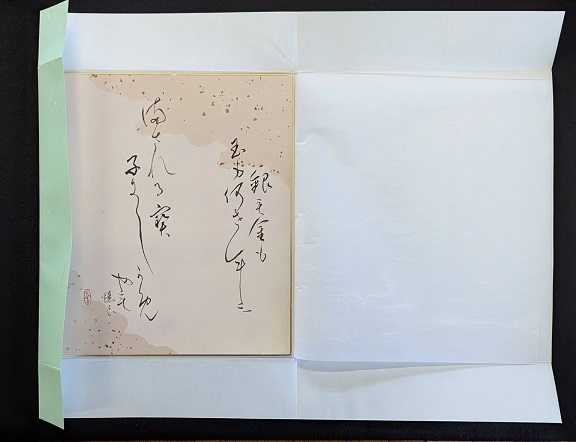 銀も金も
玉も何せむに
まされる寳
子にし
かめ
やも
憶良